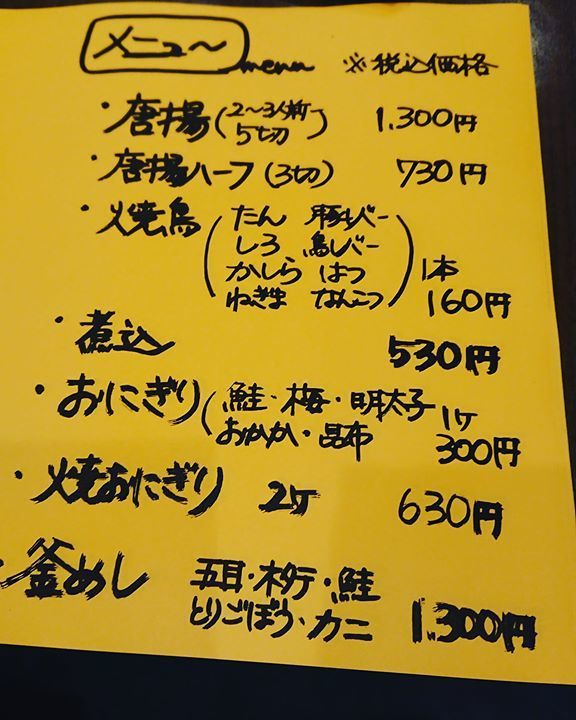 メニュ～
menu ※税込価格
・唐揚(2～3人前 5切) 1.300円
・唐揚ハーフ(3切) 730円
・焼鳥(たん 豚レバー
しろ 鳥レバー
かしら はつ
ねぎま なんこつ) 1本 160円
・煮込 530円
・おにぎり(鮭・梅・明太子
おかか・昆布 1ヶ 300円
・焼おにぎり 2ヶ 630円
・釜めし 五目・ホタテ・鮭
とりごぼう・カニ 1.300円